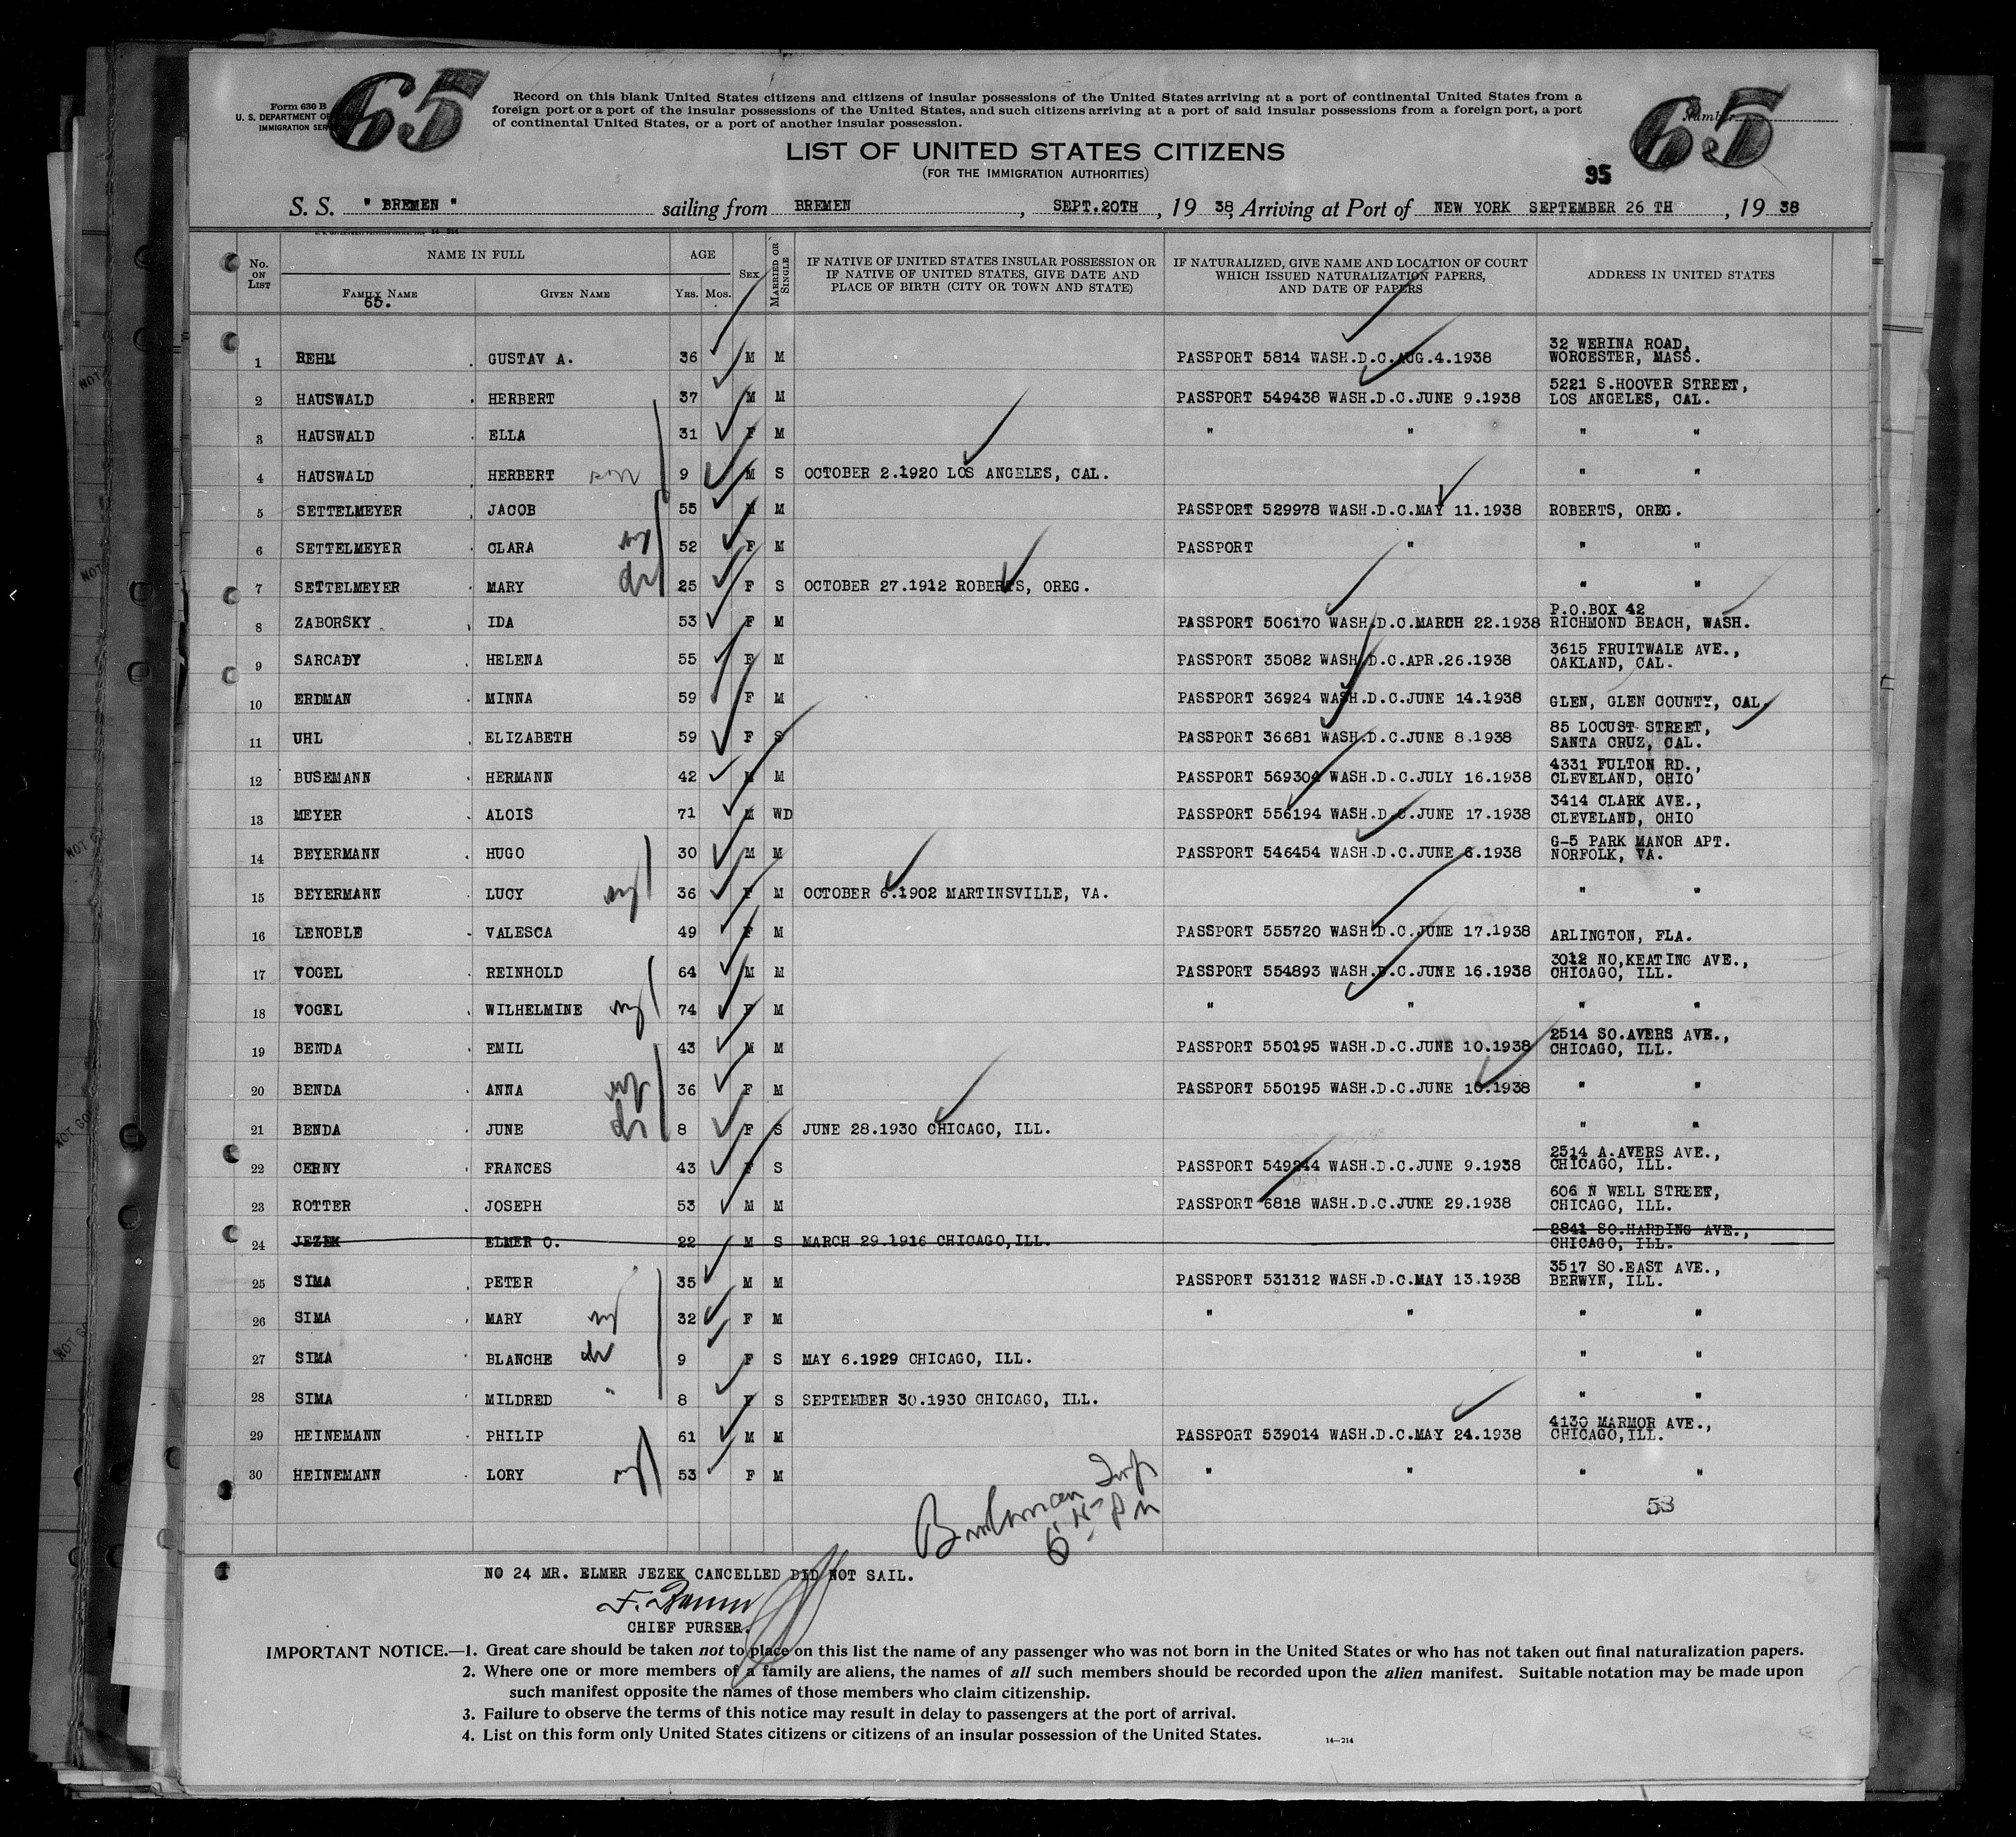 65 65
Form 630 B
U. S. DEPARTMENT OF
IMMIGRATION
Record on this blank United States citizens and citizens of insular possessions of the United States arriving at a port of continental United States from a
foreign port or a port of the insular possessions of the United States, and such citizens arriving at a port of said insular possessions from a foreign port, a port
of continental United States, or a port of another insular possession.
Number
LIST OF UNITED STATES CITIZENS
(FOR THE IMMIGRATION AUTHORITIES)
95
S. S. " BREMEN " sailing from BREMEN, SEPT.20TH, 19 38, Arriving at Port of NEW YORK SEPTEMBER 26 TH, 19 38
No. ON LIST NAME IN FULL AGE SEX MARRIED OR SINGLE IF NATIVE OF UNITED STATES INSULAR POSSESSION OR IF NATIVE OF UNITED STATES, GIVE DATE AND PLACE OF BIRTH (CITY OR TOWN AND STATE) IF NATURALIZED, GIVE NAME AND LOCATION OF COURT WHICH ISSUED NATURALIZATION PAPERS, AND DATE OF PAPERS ADDRESS IN UNITED STATES
FAMILY NAME GIVEN NAME YRS. MOS.
65.
1 REHM GUSTAV A. 36 M M PASSPORT 5814 WASH.D.C.AUG.4.1938 32 WERINA ROAD, WORCESTER, MASS.
2 HAUSWALD HERBERT 37 M M PASSPORT 549438 WASH.D.C.JUNE 9.1938 5221 S.HOOVER STREET, LOS ANGELES, CAL.
3 HAUSWALD ELLA 31 F M " " " "
4 HAUSWALD HERBERT son 9 M S OCTOBER 2.1920 LOS ANGELES, CAL. " "
5 SETTELMEYER JACOB 55 M M PASSPORT 529978 WASH.D.C.MAY 11.1938 ROBERTS, OREG.
6 SETTELMEYER CLARA 52 F M PASSPORT " " "
7 SETTELMEYER MARY 25 F S OCTOBER 27.1912 ROBERTS, OREG. " "
8 ZABORSKY IDA 53 F M PASSPORT 506170 WASH.D.C.MARCH 22.1938 P.O.BOX 42 RICHMOND BEACH, WASH.
9 SARCADY HELENA 55 F M PASSPORT 35082 WASH.D.C.APR.26.1938 3615 FRUITWALE AVE., OAKLAND, CAL.
10 ERDMAN MINNA 59 F M PASSPORT 36924 WASH.D.C.JUNE 14.1938 GLEN, GLEN COUNTY, CAL.
11 UHL ELIZABETH 59 F S PASSPORT 36681 WASH.D.C.JUNE 8.1938 85 LOCUST STREET, SANTA CRUZ, CAL.
12 BUSEMANN HERMANN 42 M M PASSPORT 569304 WASH.D.C.JULY 16.1938 4331 FULTON RD., CLEVELAND, OHIO
13 MEYER ALOIS 71 M WD PASSPORT 556194 WASH.D.C.JUNE 17.1938 3414 CLARK AVE., CLEVELAND, OHIO
14 BEYERMANN HUGO 30 M M PASSPORT 546454 WASH.D.C.JUNE 6.1938 G-5 PARK MANOR APT. NORFOLK, VA.
15 BEYERMANN LUCY 36 F M OCTOBER 6.1902 MARTINSVILLE, VA. " "
16 LENOBLE VALESCA 49 F M PASSPORT 555720 WASH.D.C.JUNE 17.1938 ARLINGTON, FLA.
17 VOGEL REINHOLD 64 M M PASSPORT 554893 WASH.D.C.JUNE 16.1938 3012 NO,KEATING AVE., CHICAGO, ILL.
18 VOGEL WILHELMINE 74 F M " " " "
19 BENDA EMIL 43 M M PASSPORT 550195 WASH.D.C.JUNE 10.1938 2514 SO.AVERS AVE., CHICAGO, ILL.
20 BENDA ANNA 36 F M PASSPORT 550195 WASH.D.C.JUNE 10.1938 " "
21 BENDA JUNE 8 F S JUNE 28.1930 CHICAGO, ILL. " "
22 CERNY FRANCES 43 F S PASSPORT 549244 WASH.D.C.JUNE 9.1938 2514 A.AVERS AVE., CHICAGO, ILL.
23 ROTTER JOSEPH 53 M M PASSPORT 6818 WASH.D.C.JUNE 29.1938 606 N WELL STREET, CHICAGO, ILL.
24 JEZEK ELMER O. 22 M S MARCH 29.1916 CHICAGO,ILL. 2841 SO.HARDING AVE., CHICAGO, ILL.
25 SIMA PETER 35 M M PASSPORT 531312 WASH.D.C.MAY 13.1938 3517 SO.EAST AVE., BERWYN, ILL.
26 SIMA MARY 32 F M " " " "
27 SIMA BLANCHE 9 F S MAY 6.1929 CHICAGO, ILL. " "
28 SIMA MILDRED " 8 F S SEPTEMBER 30.1930 CHICAGO, ILL. " "
29 HEINEMANN PHILIP 61 M M PASSPORT 539014 WASH.D.C.MAY 24.1938 4130 MARMOR AVE., CHICAGO,ILL.
30 HEINEMANN LORY 53 F M " " " "
53
NO 24 MR. ELMER JEZEK CANCELLED DID NOT SAIL.
CHIEF PURSER.
IMPORTANT NOTICE.—1. Great care should be taken not to place on this list the name of any passenger who was not born in the United States or who has not taken out final naturalization papers.
2. Where one or more members of a family are aliens, the names of all such members should be recorded upon the alien manifest. Suitable notation may be made upon
such manifest opposite the names of those members who claim citizenship.
3. Failure to observe the terms of this notice may result in delay to passengers at the port of arrival.
4. List on this form only United States citizens or citizens of an insular possession of the United States.
14—214